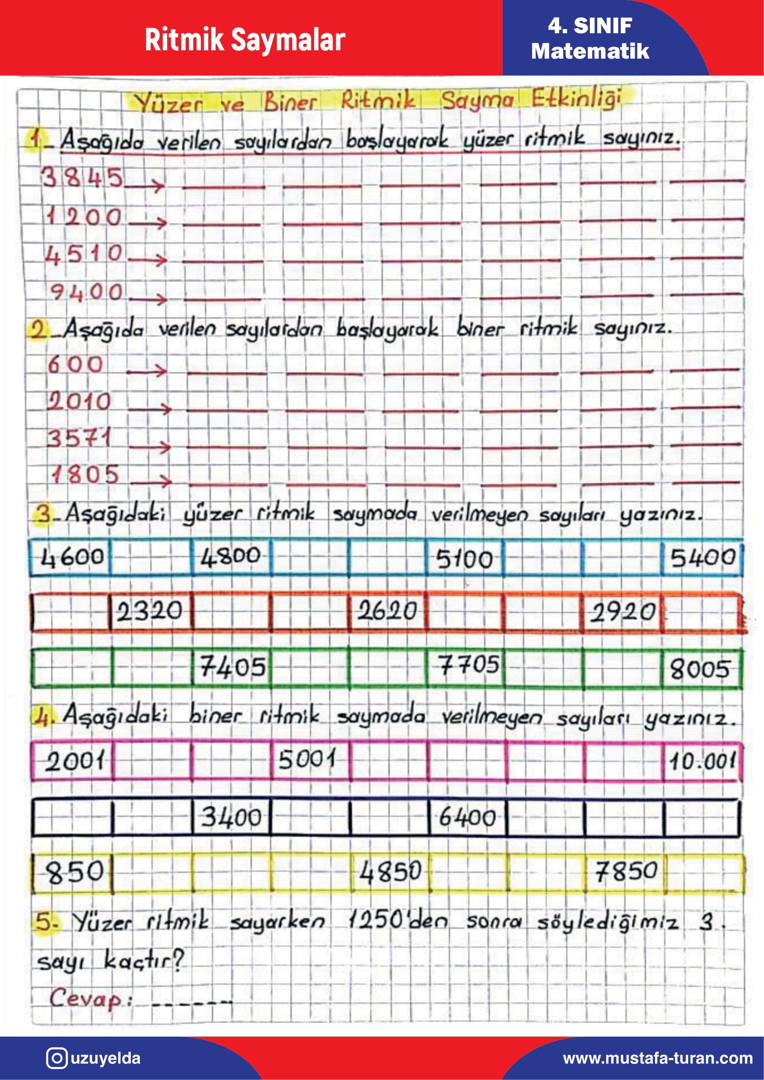 Ritmik Saymalar
4. SINIF
Matematik
Yüzer ve Biner Ritmik Sayma Etkinliği
1- Aşağıda verilen sayılardan başlayarak yüzer ritmik sayınız.
3845 →
1200 →
4510 →
9400 →
2- Aşağıda verilen sayılardan başlayarak biner ritmik sayınız.
600 →
2010 →
3571 →
1805 →
3- Aşağıdaki yüzer ritmik saymada verilmeyen sayıları yazınız.
4600 4800 5100 5400
2320 2620 2920
7405 7705 8005
4. Aşağıdaki biner ritmik saymada verilmeyen sayıları yazınız.
2001 5001 10.001
3400 6400
850 4850 7850
5- Yüzer ritmik sayarken 1250'den sonra söylediğimiz 3.
sayı kaçtır?
Cevap: -------
uzuyelda
www.mustafa-turan.com